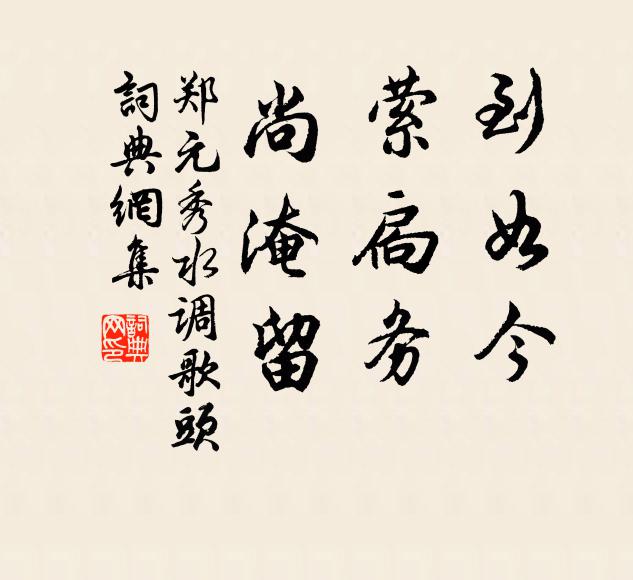 到如今
萦扃务
尚淹留
郑元秀水调歌頭
詞典網集
詞典网印